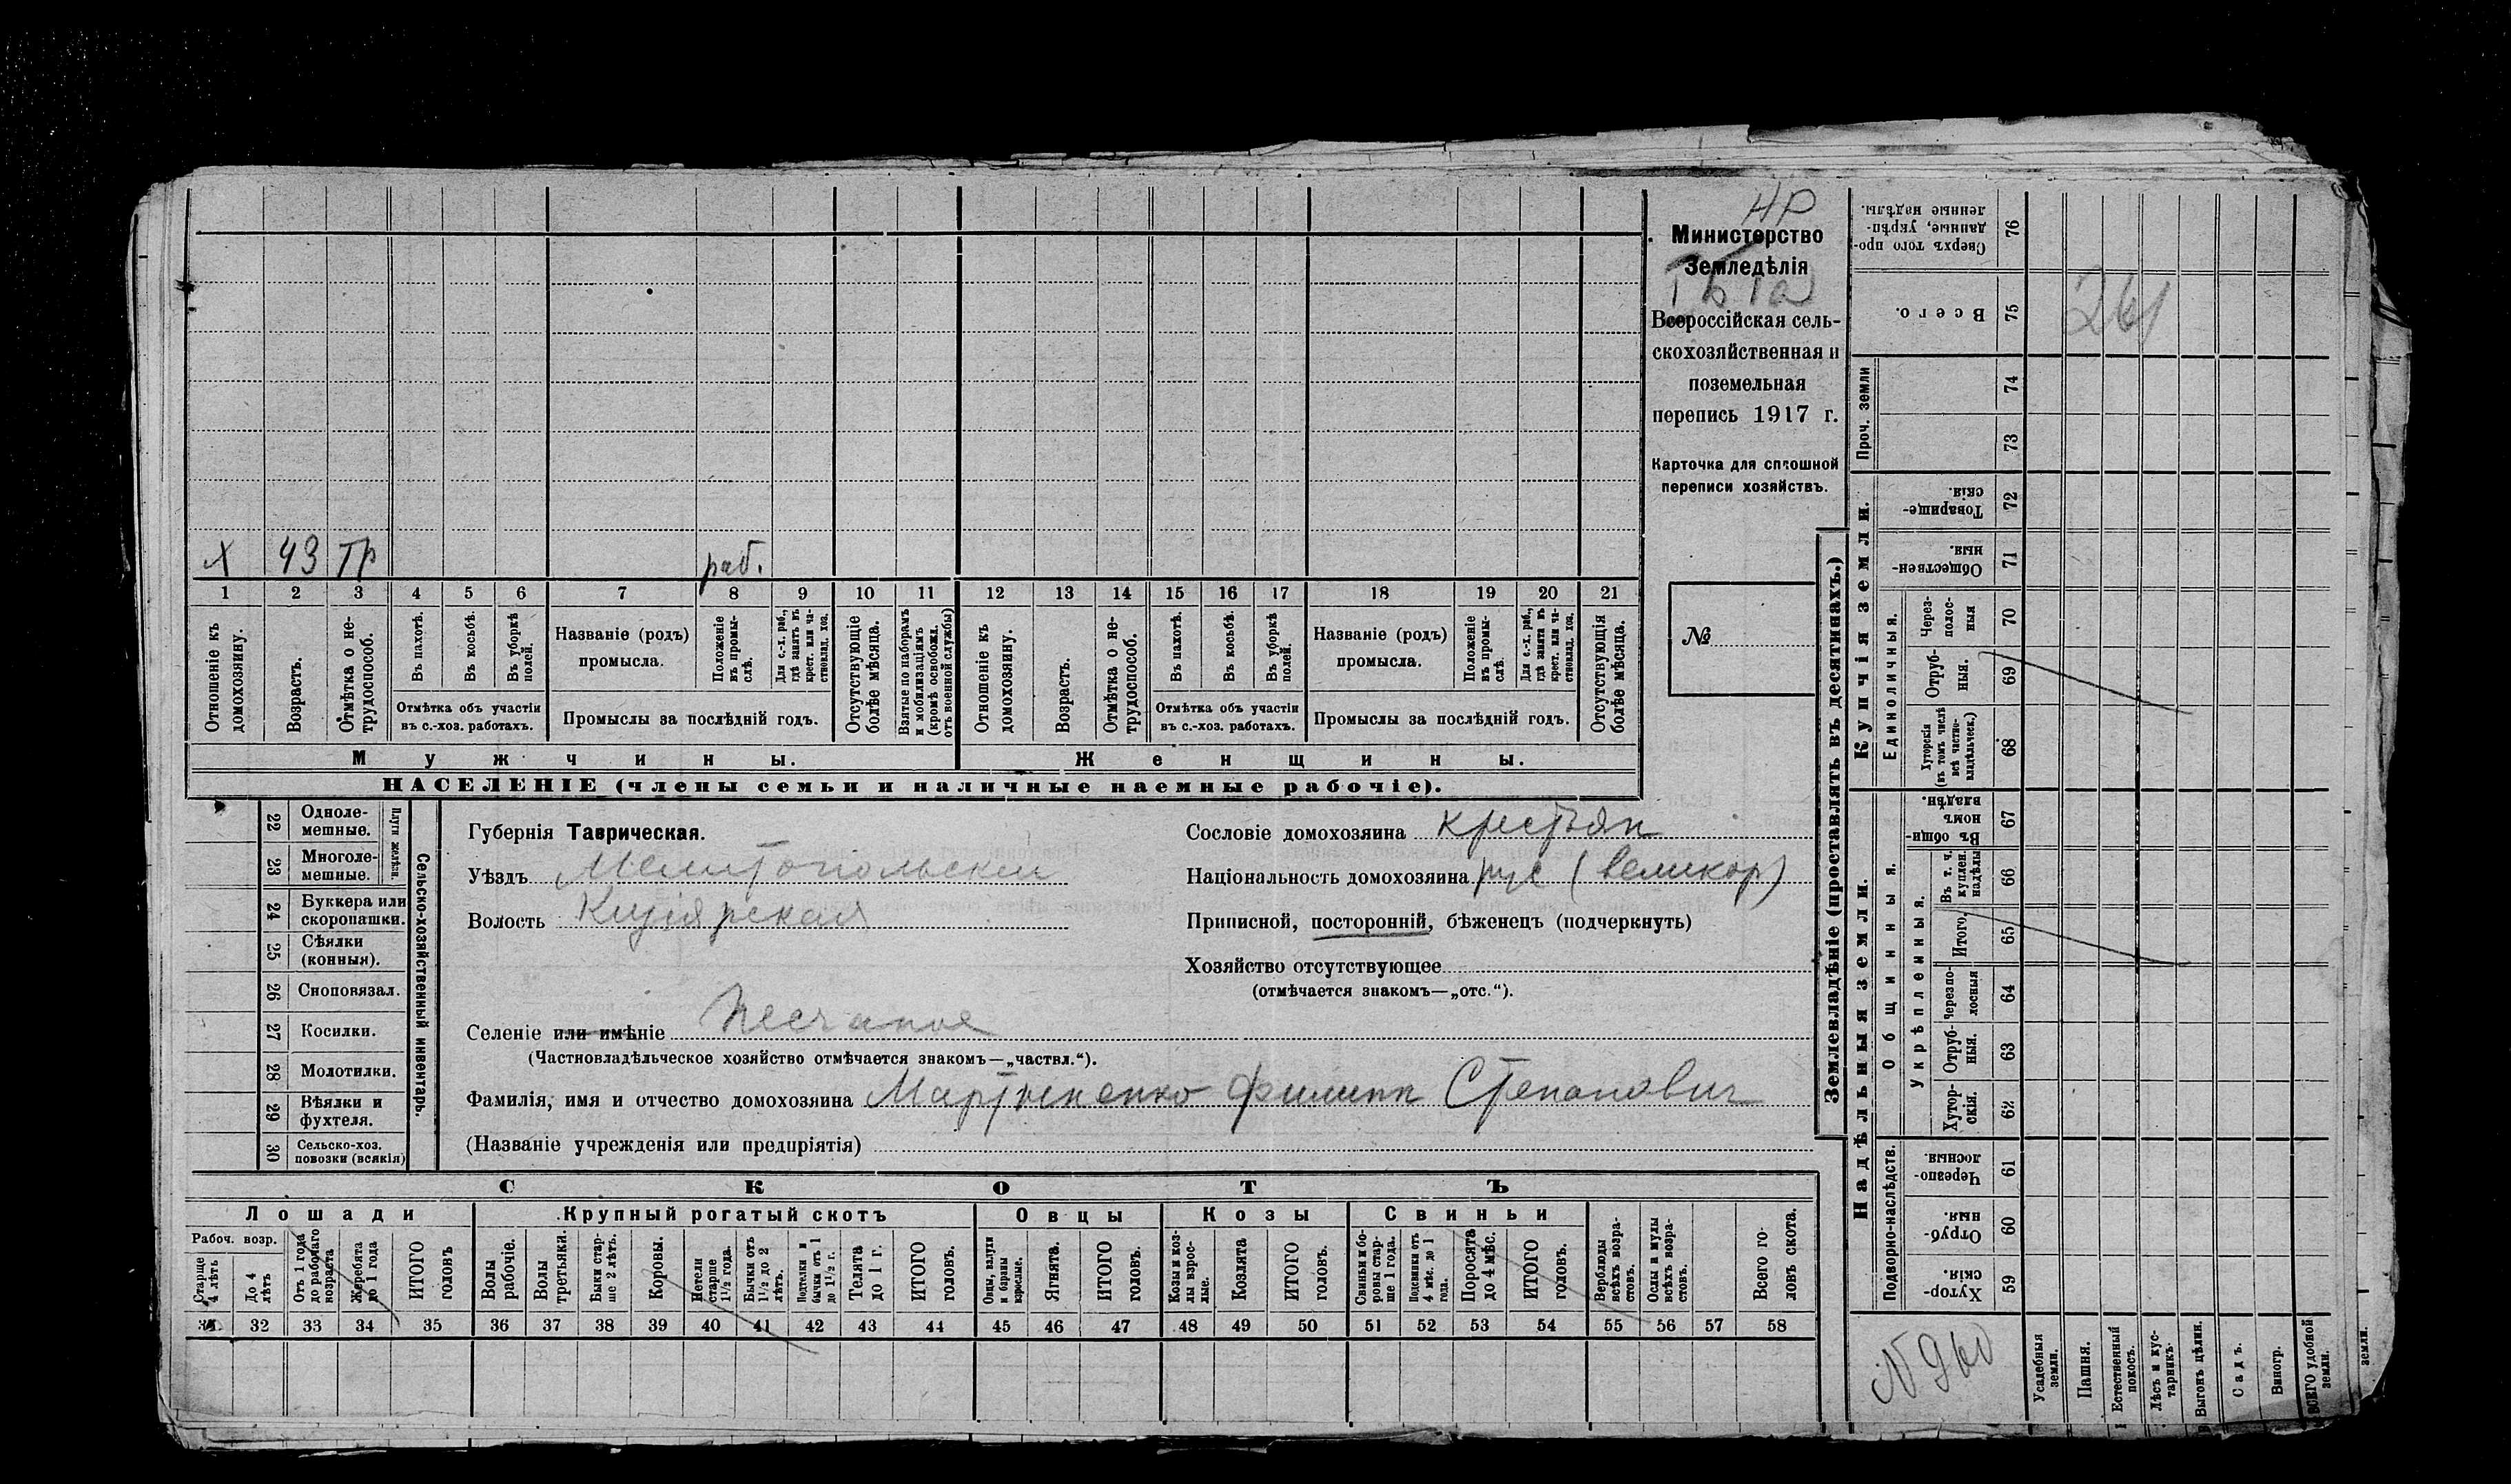 НР
Министерство
Земледѣлія
Всероссійская сель-
скохозяйственная и
поземельная
перепись 1917 г.
Карточка для сплошной
переписи хозяйствъ.
№
х 43 тр раб.
1 2 3 4 5 6 7 8 9 10 11 12 13 14 15 16 17 18 19 20 21
Отношеніе къ домохозяину.
Возрастъ.
Отмѣтка о не-трудоспособ.
Въ пахотѣ.
Въ косьбѣ.
Въ уборкѣ полей.
Отмѣтка объ участіи
въ с.-хоз. работахъ.
Названіе (родъ)
промысла.
Положеніе въ промы-слѣ.
Для с.-х. раб., гдѣ занятъ въ крест. или ча-стновлад. хоз.
Промыслы за послѣдній годъ.
Отсутствующіе болѣе мѣсяца.
Взятые по наборамъ и мобилизаціямъ (кромѣ освобожд. отъ военной службы)
Отношеніе къ домохозяину.
Возрастъ.
Отмѣтка о не-трудоспособ.
Въ пахотѣ.
Въ косьбѣ.
Въ уборкѣ полей.
Отмѣтка объ участіи
въ с.-хоз. работахъ.
Названіе (родъ)
промысла.
Положеніе въ промы-слѣ.
Для с.-х. раб., гдѣ занята въ крест. или ча-стновлад. хоз.
Промыслы за послѣдній годъ.
Отсутствующія болѣе мѣсяца.
Мужчины. Женщины.
НАСЕЛЕНІЕ (члены семьи и наличные наемные рабочіе).
Сельско-хозяйственный инвентарь.
Плуги желѣзн.
22 Одноле-мешные.
23 Многоле-мешные.
24 Буккера или скоропашки.
25 Сѣялки (конныя).
26 Сноповязал.
27 Косилки.
28 Молотилки.
29 Вѣялки и фухтеля.
30 Сельско-хоз. повозки (всякія)
Губернія Таврическая.
Уѣздъ Мелитопольский
Волость Кизіярская
Селеніе или имѣніе Песчаное
(Частновладѣльческое хозяйство отмѣчается знакомъ—„частвл.“).
Фамилія, имя и отчество домохозяина Мартыненко Филипп Степанович
(Названіе учрежденія или предпріятія)
Сословіе домохозяина крестьян
Національность домохозяина рус (великор)
Приписной, посторонній, бѣженецъ (подчеркнуть)
Хозяйство отсутствующее
(отмѣчается знакомъ—„отс.“).
СКОТЪ
Лошади Крупный рогатый скотъ Овцы Козы Свиньи
Рабоч. возр.
Старше 4 лѣтъ
До 4 лѣтъ
Отъ 1 года до рабочаго возраста
Жеребята до 1 года
ИТОГО головъ
Волы рабочіе.
Волы третьяки.
Быки стар-ше 2 лѣтъ.
Коровы.
Нетели старше 1½ года.
Бычки отъ 1½ до 2 лѣтъ.
Подтелки и бычки отъ 1 до 1½ г.
Телята до 1 г.
ИТОГО головъ.
Овцы, валухи и бараны взрослые.
Ягнята.
ИТОГО головъ.
Козы и коз-лы взрос-лые.
Козлята
ИТОГО головъ.
Свиньи и бо-ровы стар-ше 1 года.
Подсвинки отъ 4 мѣс. до 1 года.
Поросята до 4 мѣс.
ИТОГО головъ.
Верблюды всѣхъ возра-стовъ.
Ослы и мулы всѣхъ возра-стовъ.
Всего го-ловъ скота.
31 32 33 34 35 36 37 38 39 40 41 42 43 44 45 46 47 48 49 50 51 52 53 54 55 56 57 58
Землевладѣніе (проставлять въ десятинахъ.)
Надѣльныя земли.
Купчія земли.
Проч. земли
Подворно-наслѣдств.
Общинныя.
Укрѣпленныя.
Единоличныя.
76 Сверхъ того про-данные, укрѣп-ленные надѣлы.
75 Всего.
74
73
72 Товарище-скія
71 Обществен-ныя.
70 Через-полос-ныя
69 Отруб-ныя.
68 Хуторскія (въ томъ числѣ всѣ частно-владѣльческ.)
67 Въ общин-номъ владѣн.
66 Въ т. ч. куплен. надѣлы
65 Итого.
64 Черезпо-лосныя
63 Отруб-ныя.
62 Хутор-скія.
61 Черезпо-лосныя.
60 Отруб-ныя.
59 Хутор-скія.
261
N 960
Усадебныя земли.
Пашня.
Естественный покосъ.
Лѣсъ и кус-тарникъ.
Выгонъ цѣлин.
Садъ.
Виногр.
ВСЕГО удобной земли.
земли.